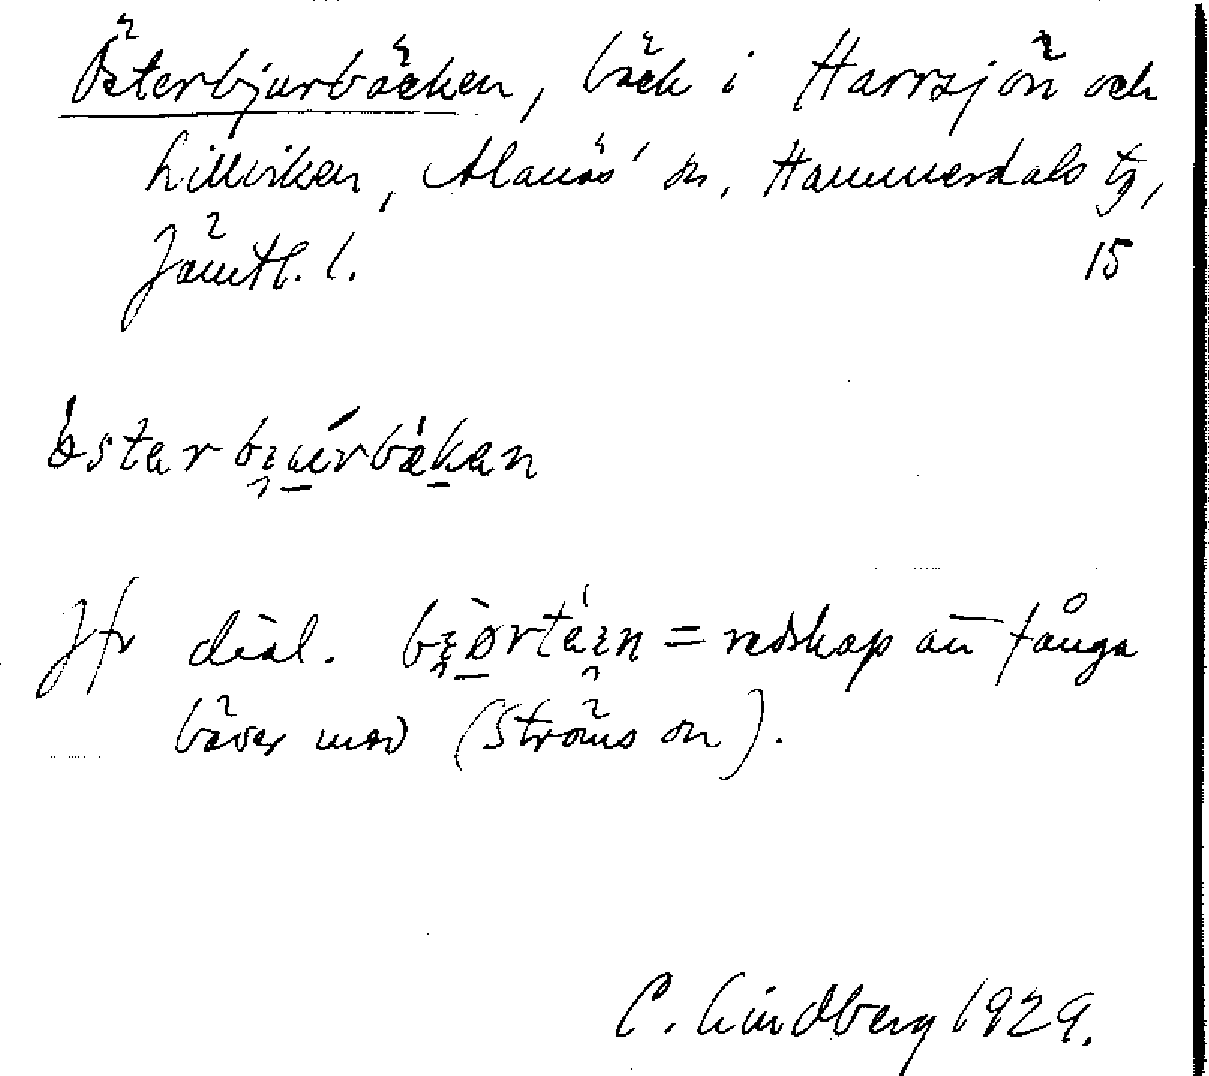 Österbjurbäcken, bäck i Harrsjön och
Lillviken, Alanäs' sn, Hammerdals tg,
Jämtl. l. 15
Jfr dial. = redskap att fånga
bäver med (Ströms sn).
C. Lindberg 1929.